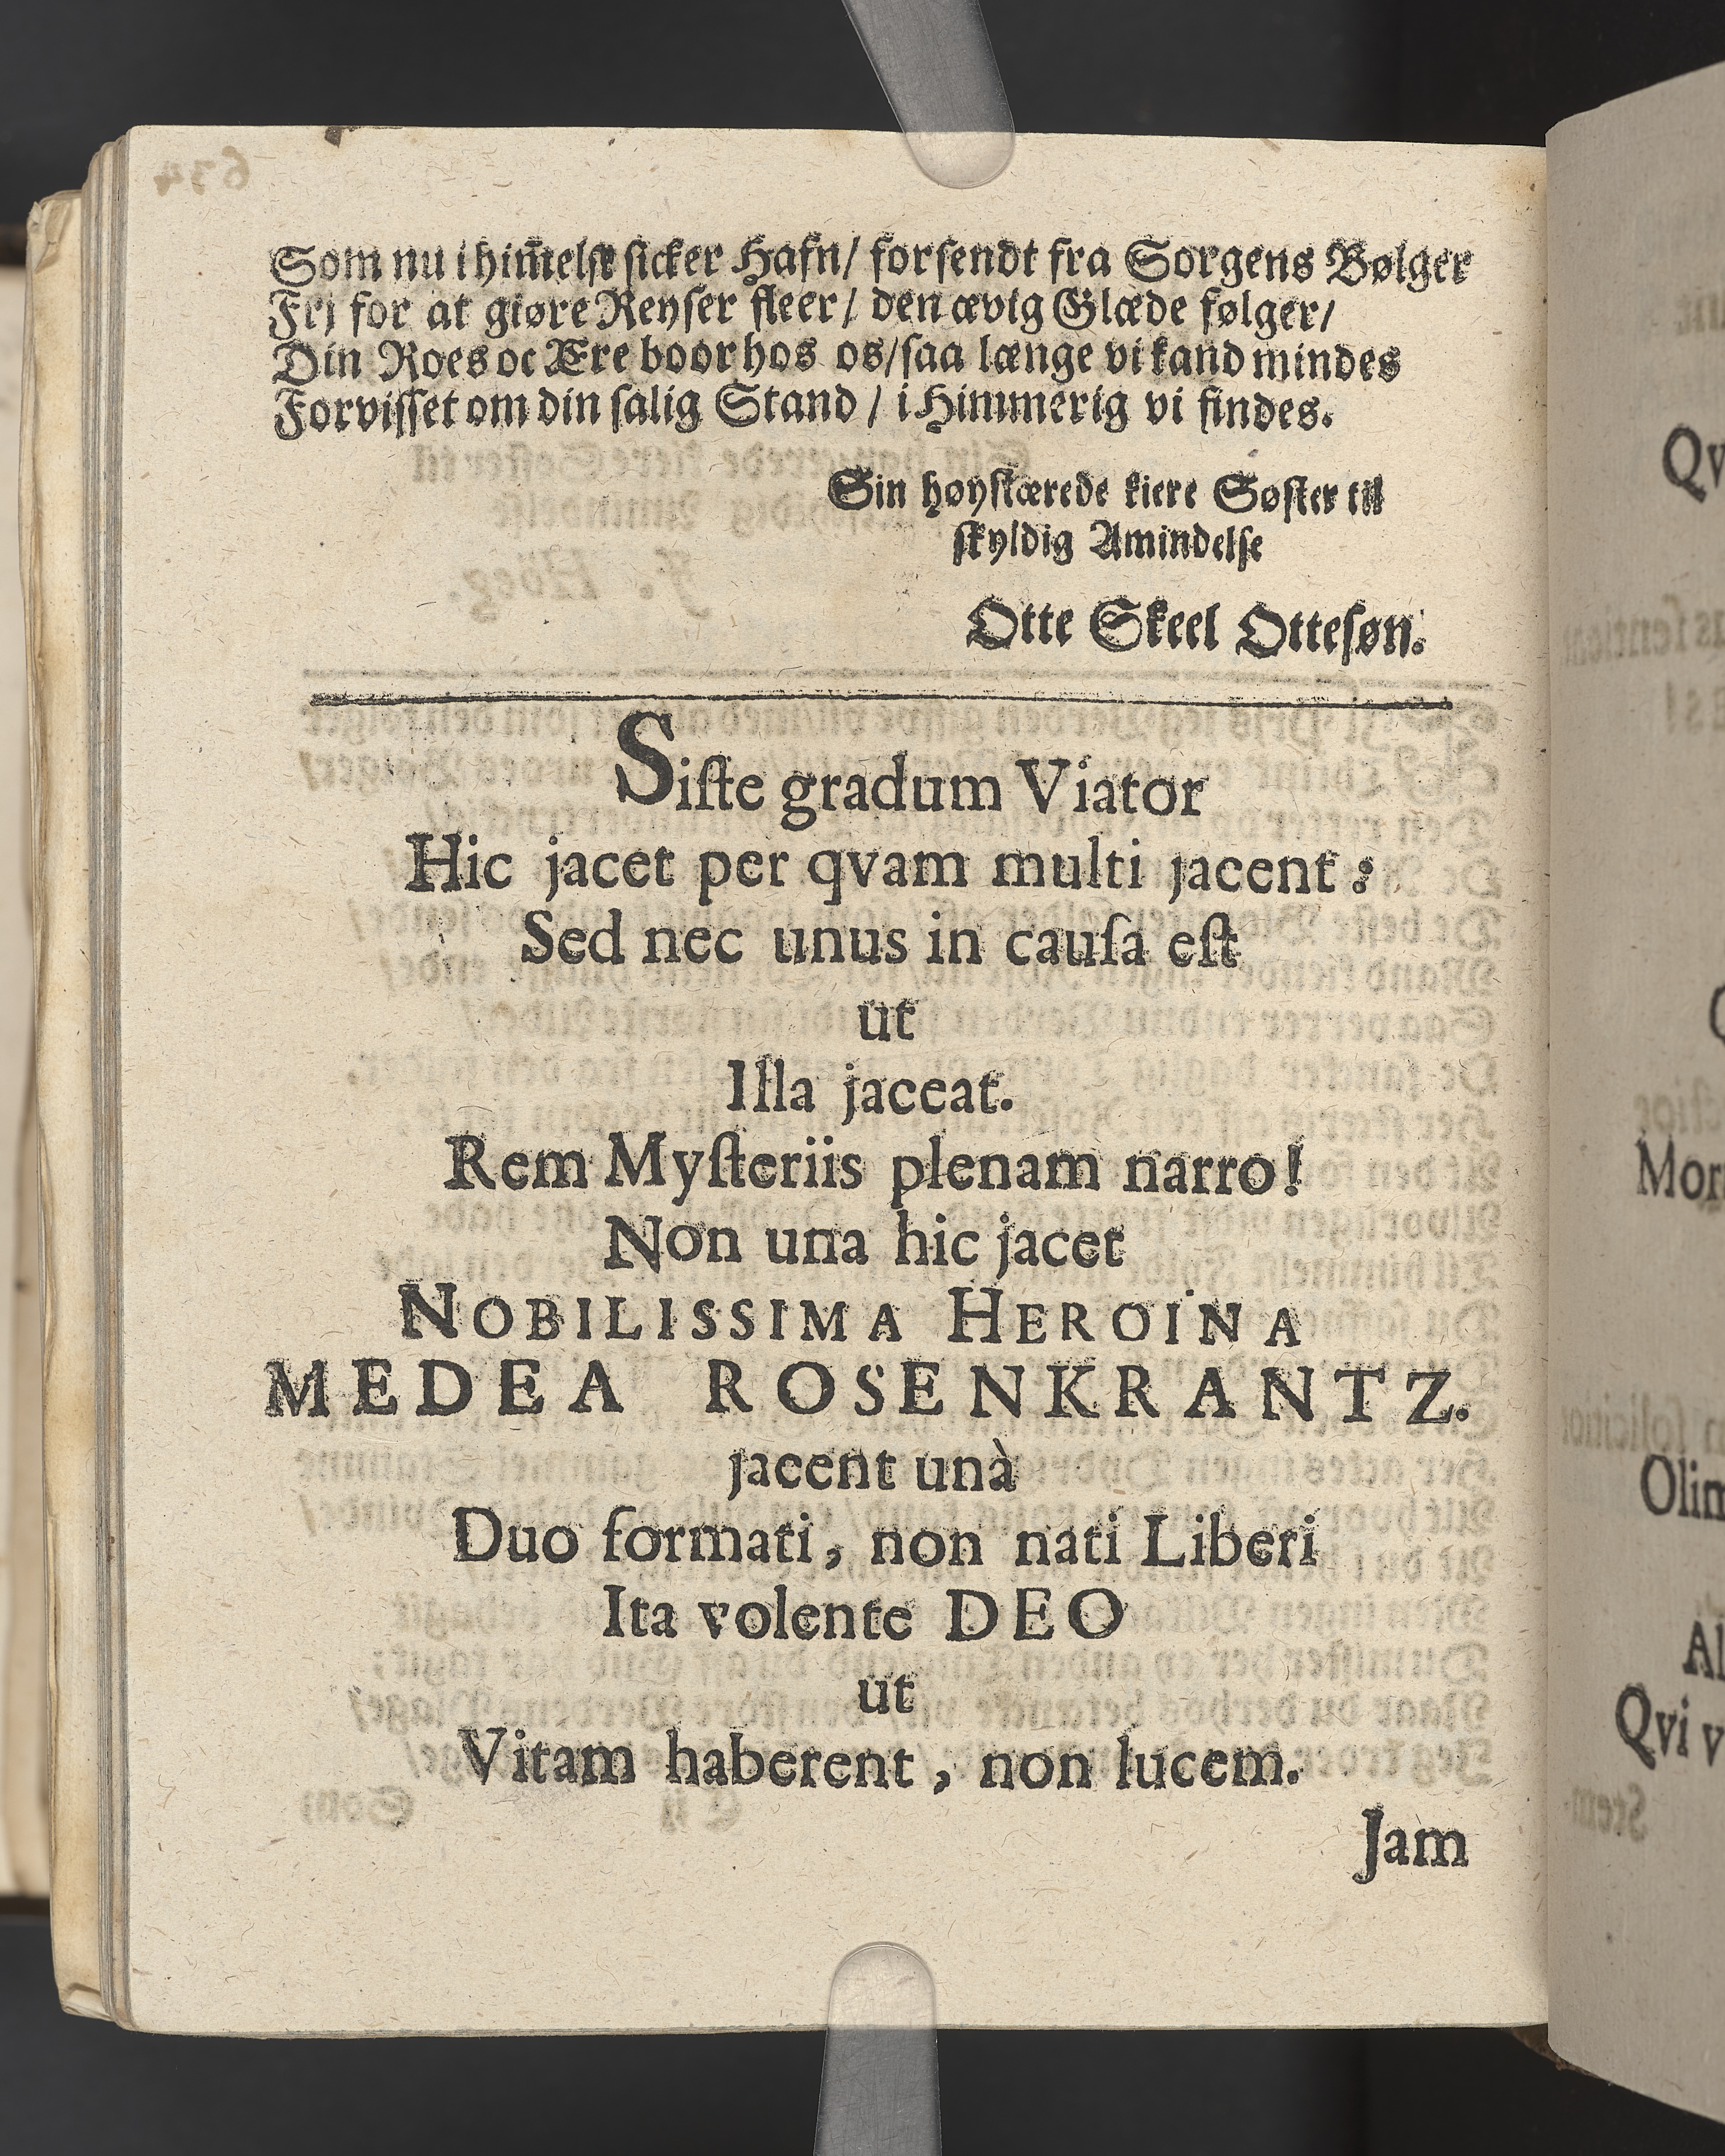 Som nu i him̄elsk sicker Hafn/ forsendt fra Sorgens Bølger
Frj for at giøre Reyser fleer/ den ævig Glæde følger/
Din Roes oc Ære boor hos os/ saa længe vi kand mindes
Forvisset om din salig Stand / i Himmerig vi findes.
Sin høystærede kiere Søster til
skyldig Amindelse
Otte Skeel Ottesøn.
Siste gradum Viator
Hic jacet per qvam multi jacent:
Sed nec unus in causa est
ut
Illa jaceat.
Rem Mysteriis plenam narro!
Non una hic jacet
NOBILISSIMA HEROÏNA
MEDEA ROSENKRANTZ.
jacent unà
Duo formati, non nati Liberi
Ita volente DEO
ut
Vitam haberent, non lucem.
Jam
Mor
Olim
Al
Qvi v